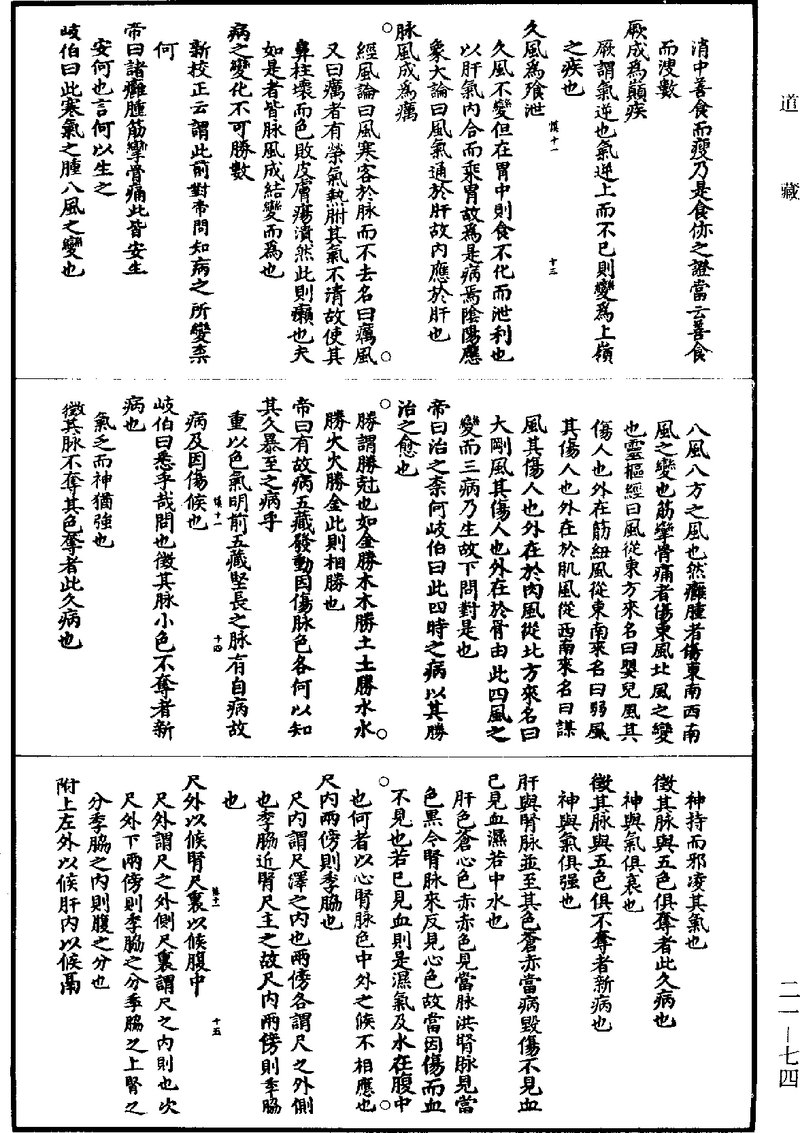 道藏
消中善食而瘦乃是食㑊之證當云善食
而溲數
厥成爲巔疾
厥謂氣逆也氣逆上而不已則變爲上巔
之疾也
久風爲飧泄
慎十一
十三
久風不變但在胃中則食不化而泄利也
以肝氣內合而乘胃故爲是病焉陰陽應
象大論曰風氣通於肝故內應於肝也
脉風成爲癘
經風論曰風寒客於脉而不去名曰癘風
又曰癘者有榮氣熱胕其氣不清故使其
鼻柱壞而色敗皮膚瘍潰然此則癩也夫
如是者皆脉風成結變而爲也
病之變化不可勝數
新校正云謂此前對帝問知病之所變柰
何
帝曰諸癰腫筋攣骨痛此皆安生
安何也言何以生之
岐伯曰此寒氣之腫八風之變也
八風八方之風也然癰腫者傷東南西南
風之變也筋攣骨痛者傷東風北風之變
也靈樞經曰風從東方來名曰嬰兒風其
傷人也外在筋紐風從東南來名曰弱風
其傷人也外在於肌風從西南來名曰謀
風其傷人也外在於肉風從北方來名曰
大剛風其傷人也外在於骨由此四風之
變而三病乃生故下問對是也
帝曰治之柰何岐伯曰此四時之病以其勝
治之愈也
勝謂勝尅也如金勝木木勝土土勝水水
勝火火勝金此則相勝也
帝曰有故病五藏發動因傷脉色各何以知
其久暴至之病乎
重以色氣明前五藏堅長之脉有自病故
病及因傷候也
慎十一
十四
岐伯曰悉乎哉問也徵其脉小色不奪者新
病也
氣乏而神猶強也
徵其脉不奪其色奪者此久病也
神持而邪凌其氣也
徵其脉與五色俱奪者此久病也
神與氣俱衰也
徵其脉與五色俱不奪者新病也
神與氣俱强也
肝與腎脉並至其色蒼赤當病毀傷不見血
已見血濕若中水也
肝色蒼心色赤赤色見當脉洪腎脉見當
色黑今腎脉來反見心色故當因傷而血
不見也若已見血則是濕氣及水在腹中
也何者以心腎脉色中外之候不相應也
尺內兩傍則季脇也
尺內謂尺澤之內也兩傍各謂尺之外側
也季脇近腎尺主之故尺內兩傍則季脇
也
慎十一
十五
尺外以候腎尺裏以候腹中
尺外謂尺之外側尺裏謂尺之內則也次
尺外下兩傍則季脇之分季脇之上腎之
分季脇之內則腹之分也
附上左外以候肝內以候鬲
二一—七四